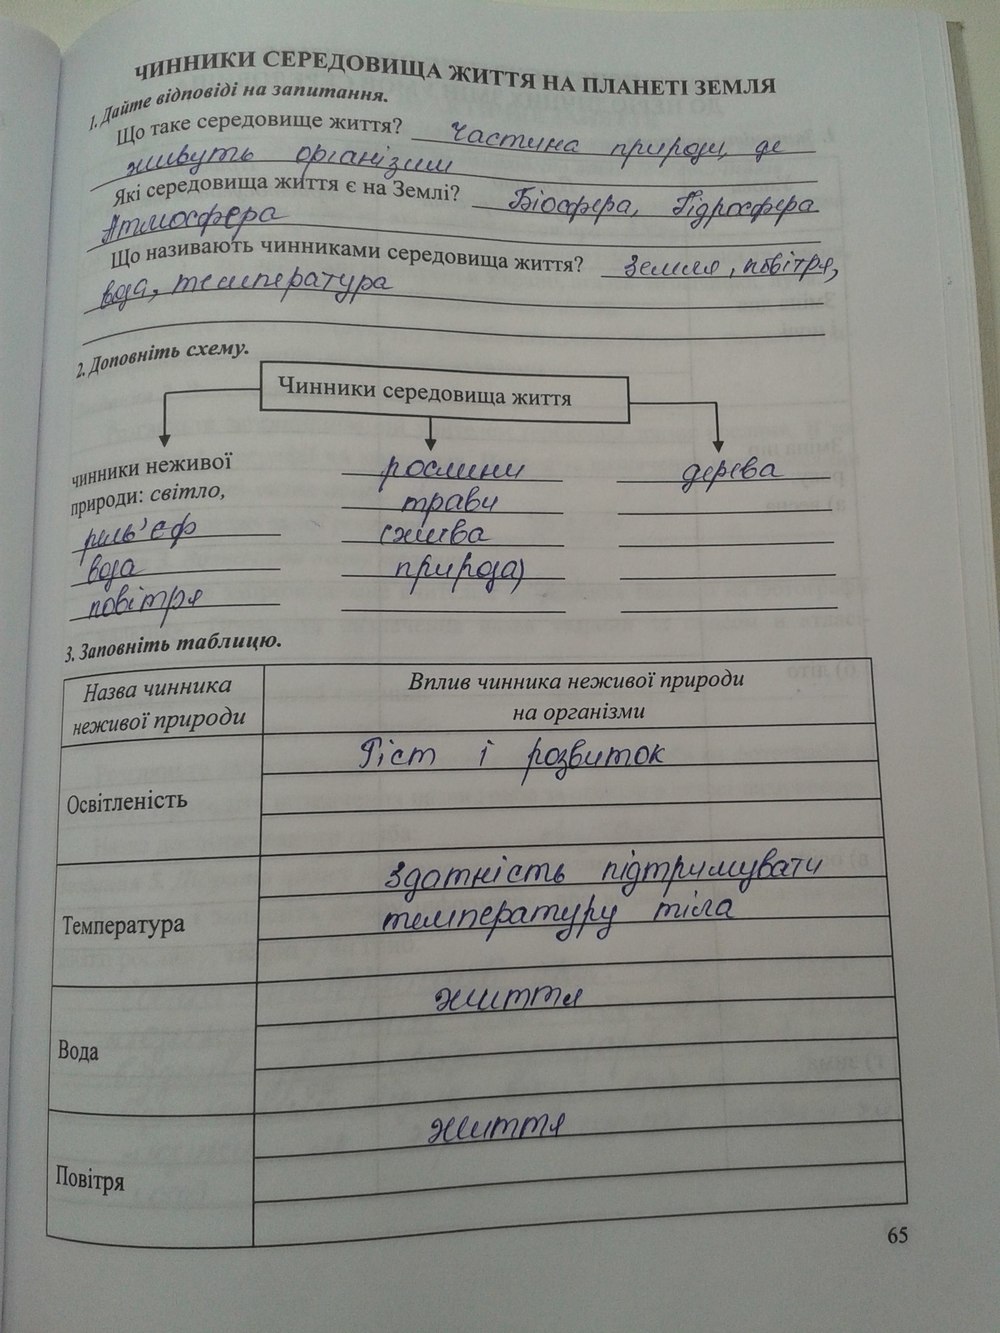 ЧИННИКИ СЕРЕДОВИЩА ЖИТТЯ НА ПЛАНЕТІ ЗЕМЛЯ
1. Дайте відповіді на запитання.
Що таке середовище життя? частина природи, де
живуть організми
Які середовища життя є на Землі? Біосфера, Гідросфера
Атмосфера
Що називають чинниками середовища життя? земля, повітря,
вода, температура
2. Доповніть схему.
Чинники середовища життя
чинники неживої
природи: світло,
рель'єф
вода
повітря
рослини
трави
(жива
природа)
дерева
3. Заповніть таблицю.
Назва чинника
неживої природи
Вплив чинника неживої природи
на організми
Освітленість
Ріст і розвиток
Температура
Здатність підтримувати
температуру тіла
Вода
життя
Повітря
життя
65